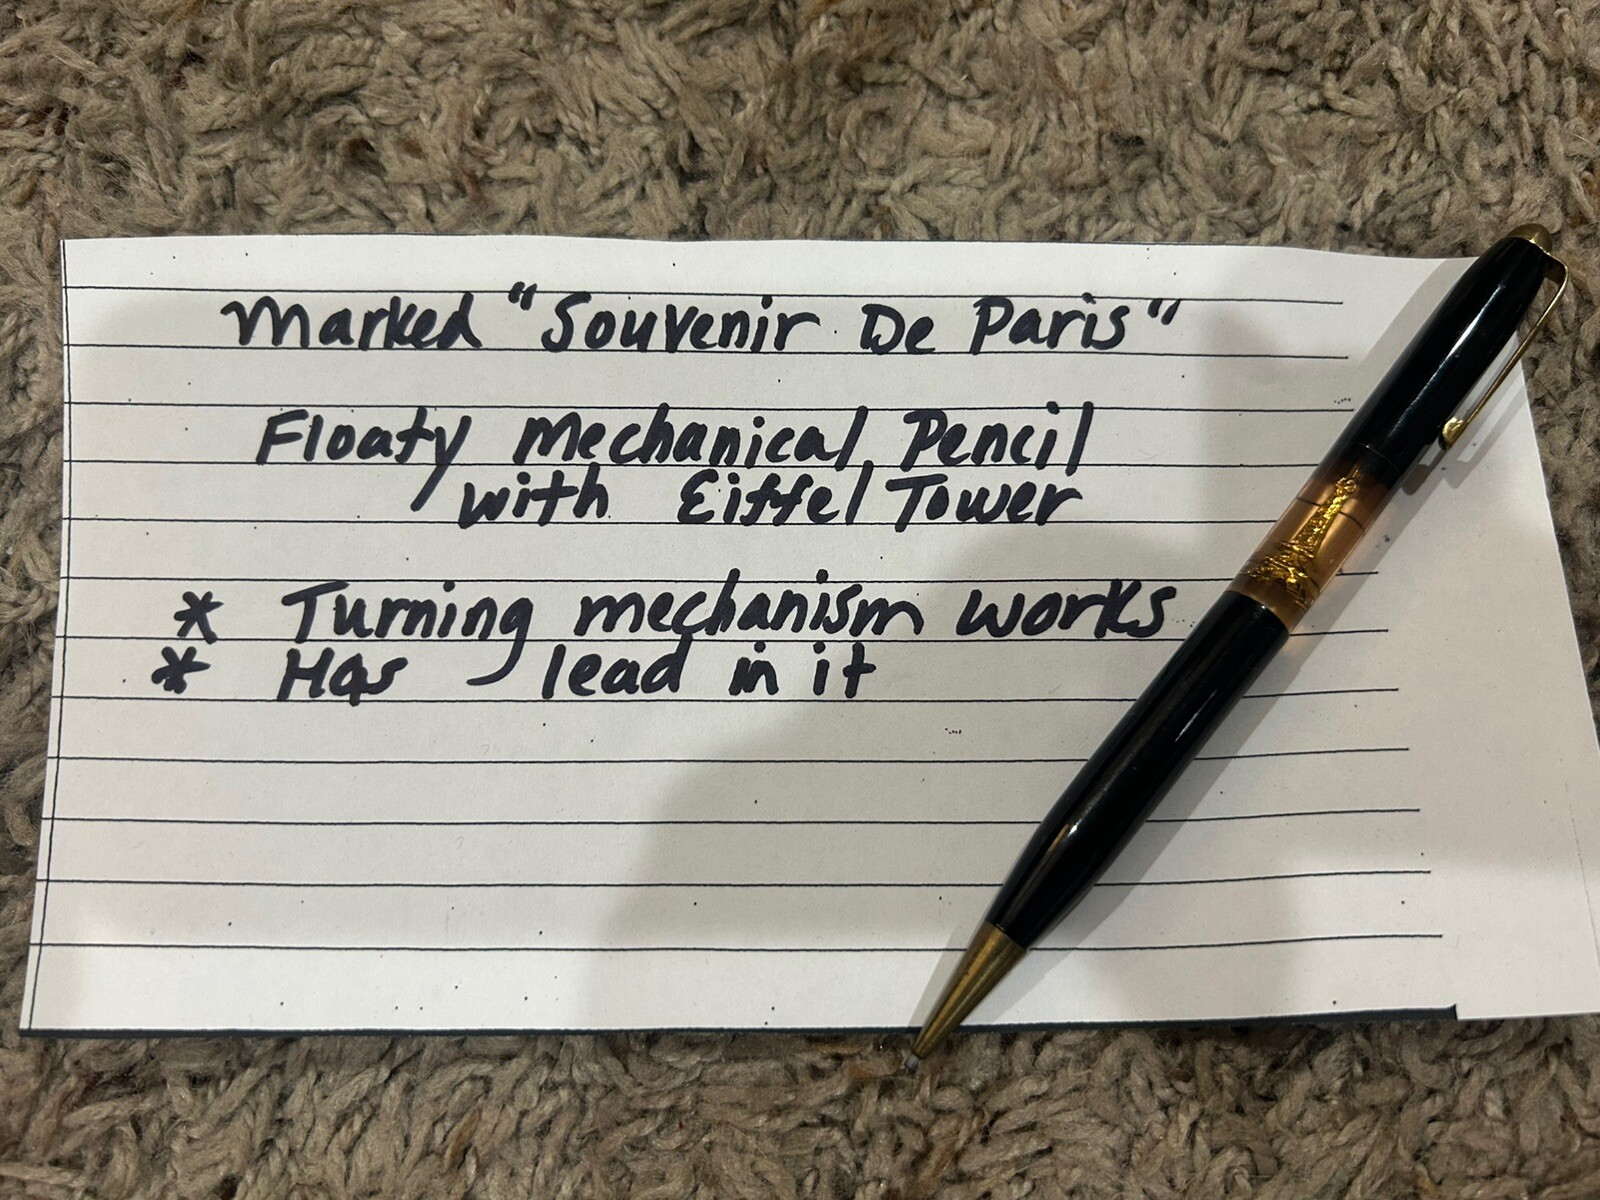 Marked "Souvenir De Paris"
Floaty Mechanical Pencil
with Eiffel Tower
* Turning mechanism works
* Has lead in it